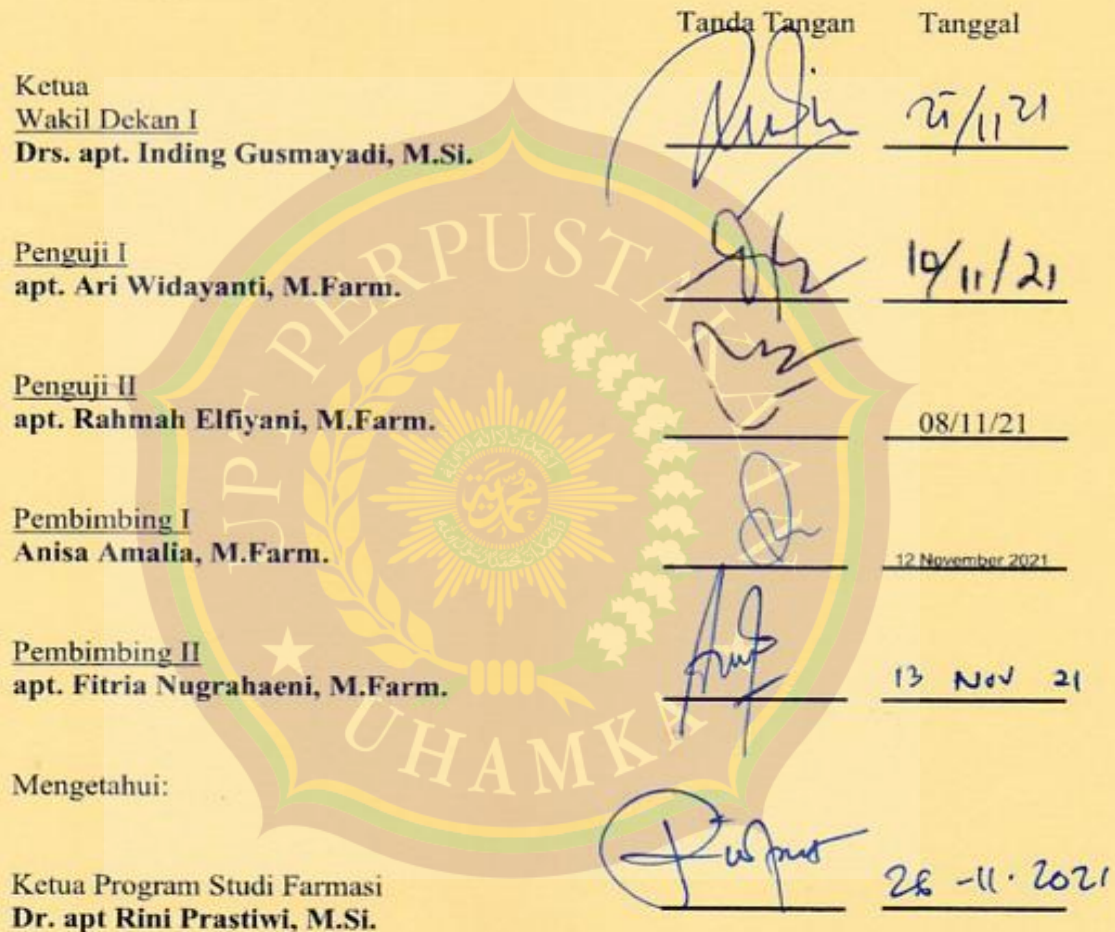 Tanda Tangan Tanggal
Ketua
Wakil Dekan I
Drs. apt. Inding Gusmayadi, M.Si.
/11 21
Penguji I
apt. Ari Widayanti, M.Farm.
/11/21
Penguji II
apt. Rahmah Elfiyani, M.Farm.
08/11/21
Pembimbing I
Anisa Amalia, M.Farm.
12 November 2021
Pembimbing II
apt. Fitria Nugrahaeni, M.Farm.
13 Nov 21
Mengetahui:
Ketua Program Studi Farmasi
Dr. apt Rini Prastiwi, M.Si.
-11.2021
UPT PERPUSTAKAAN
UHAMKA